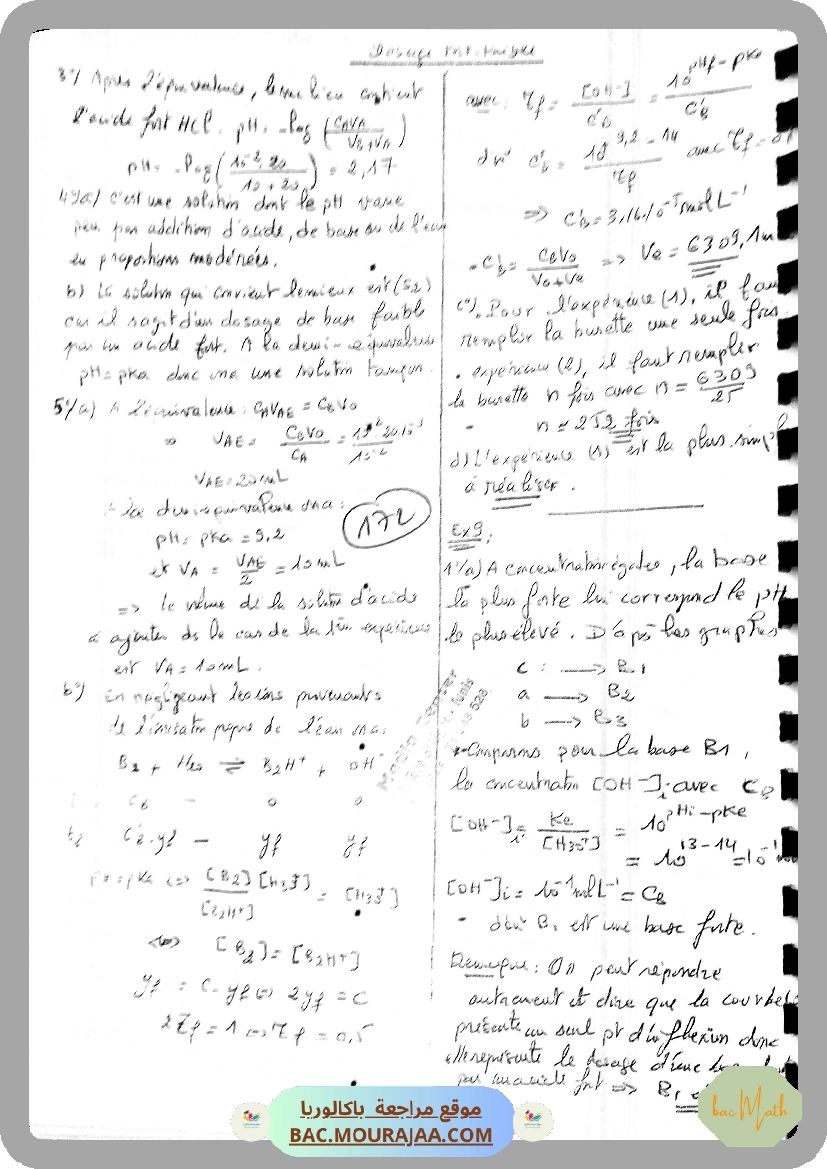 Dosage fort-faible
3°/ Après l'équivalence, le milieu contient
l'acide fort HCl. pH = -log (CAVA / VB+VA)
pH = -log (10⁻².20 / 10 + 20) = 2,17
4°/a) C'est une solution dont le pH varie
peu par addition d'acide, de base ou de l'eau
en proportions modérées.
b) La solution qui convient le mieux est (S2)
car il s'agit d'un dosage de base faible
par un acide fort. A la demi-équivalence
pH = pKa donc on a une solution tampon.
5°/a) A l'équivalence : CAVAE = CBV0
=> VAE = CBV0 / CA =
VAE = 20 mL
équivalence on a :
pH = pKa = 9,2
et VA = VAE / 2 = 10 mL
=> le volume de la solution d'acide
à ajouter ds le cas de la 1ère expérience
est VA = 10 mL.
172
b) En négligeant les ions provenants
de l'ionisation propre de l'eau on a :
B2 + H2O ⇌ B2H⁺ + OH⁻
CB - 0 0
tf C'B-yf - yf yf
pH = pKa <=> [B2][H3O⁺] / [B2H⁺] = [H3O⁺]
<=> [B2] = [B2H⁺]
yf = C - yf <=> 2yf = C
2τf = 1 <=> τf = 0,5
avec : τf = [OH⁻] / C'B = 10^(pHf - pKe) / C'B
d'où C'B = 10^(9,2 - 14) / τf avec τf =
=> C'B = 3,16.10⁻⁵ mol L⁻¹
- C'B = CBV0 / V0+Ve => Ve = 6309,1 m
c). Pour l'expérience (1), il fau
remplir la burette une seule fois.
. expérience (2), il faut remplir
la burette n fois avec n = 6309 / 25
n ≈ 252 fois
d) L'expérience (1) est la plus simpl
à réaliser.
Ex9 :
1°/a) A concentrations égales, la base
la plus forte lui correspond le pH
le plus élevé. D'après les graphes
c : ⟶ B1
a ⟶ B2
b ⟶ B3
Comparons pour la base B1,
la concentration [OH⁻]i avec CB
[OH⁻]i = Ke / [H3O⁺] = 10^(pHi - pKe)
= 10^(13 - 14) = 10⁻¹
[OH⁻]i = 10⁻¹ mol L⁻¹ = CB
- d'où B1 est une base forte.
Remarque : On peut répondre
autrement et dire que la courbe
présente un seul pt d'inflexion donc
elle représente le dosage d'une
par un acide fort => B1
موقع مراجعة باكالوريا
BAC.MOURAJAA.COM
bac Math